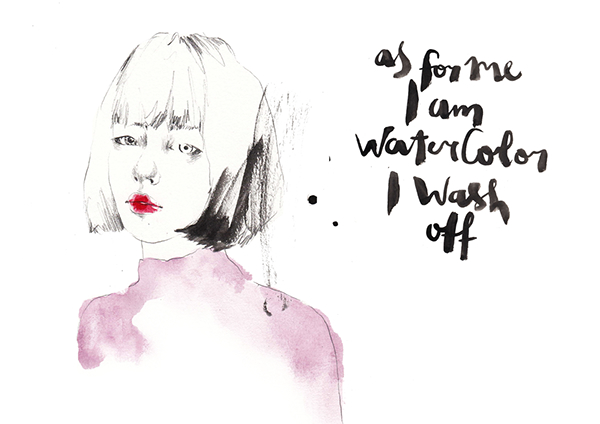 as for me
I am
watercolor
I wash
off